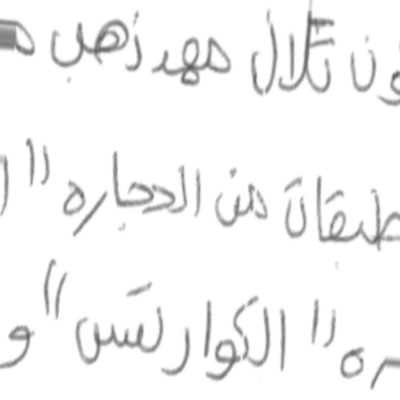 ون تلال مهد ذهب
طبقات من الحجاره "
ره " الكوارتس " و